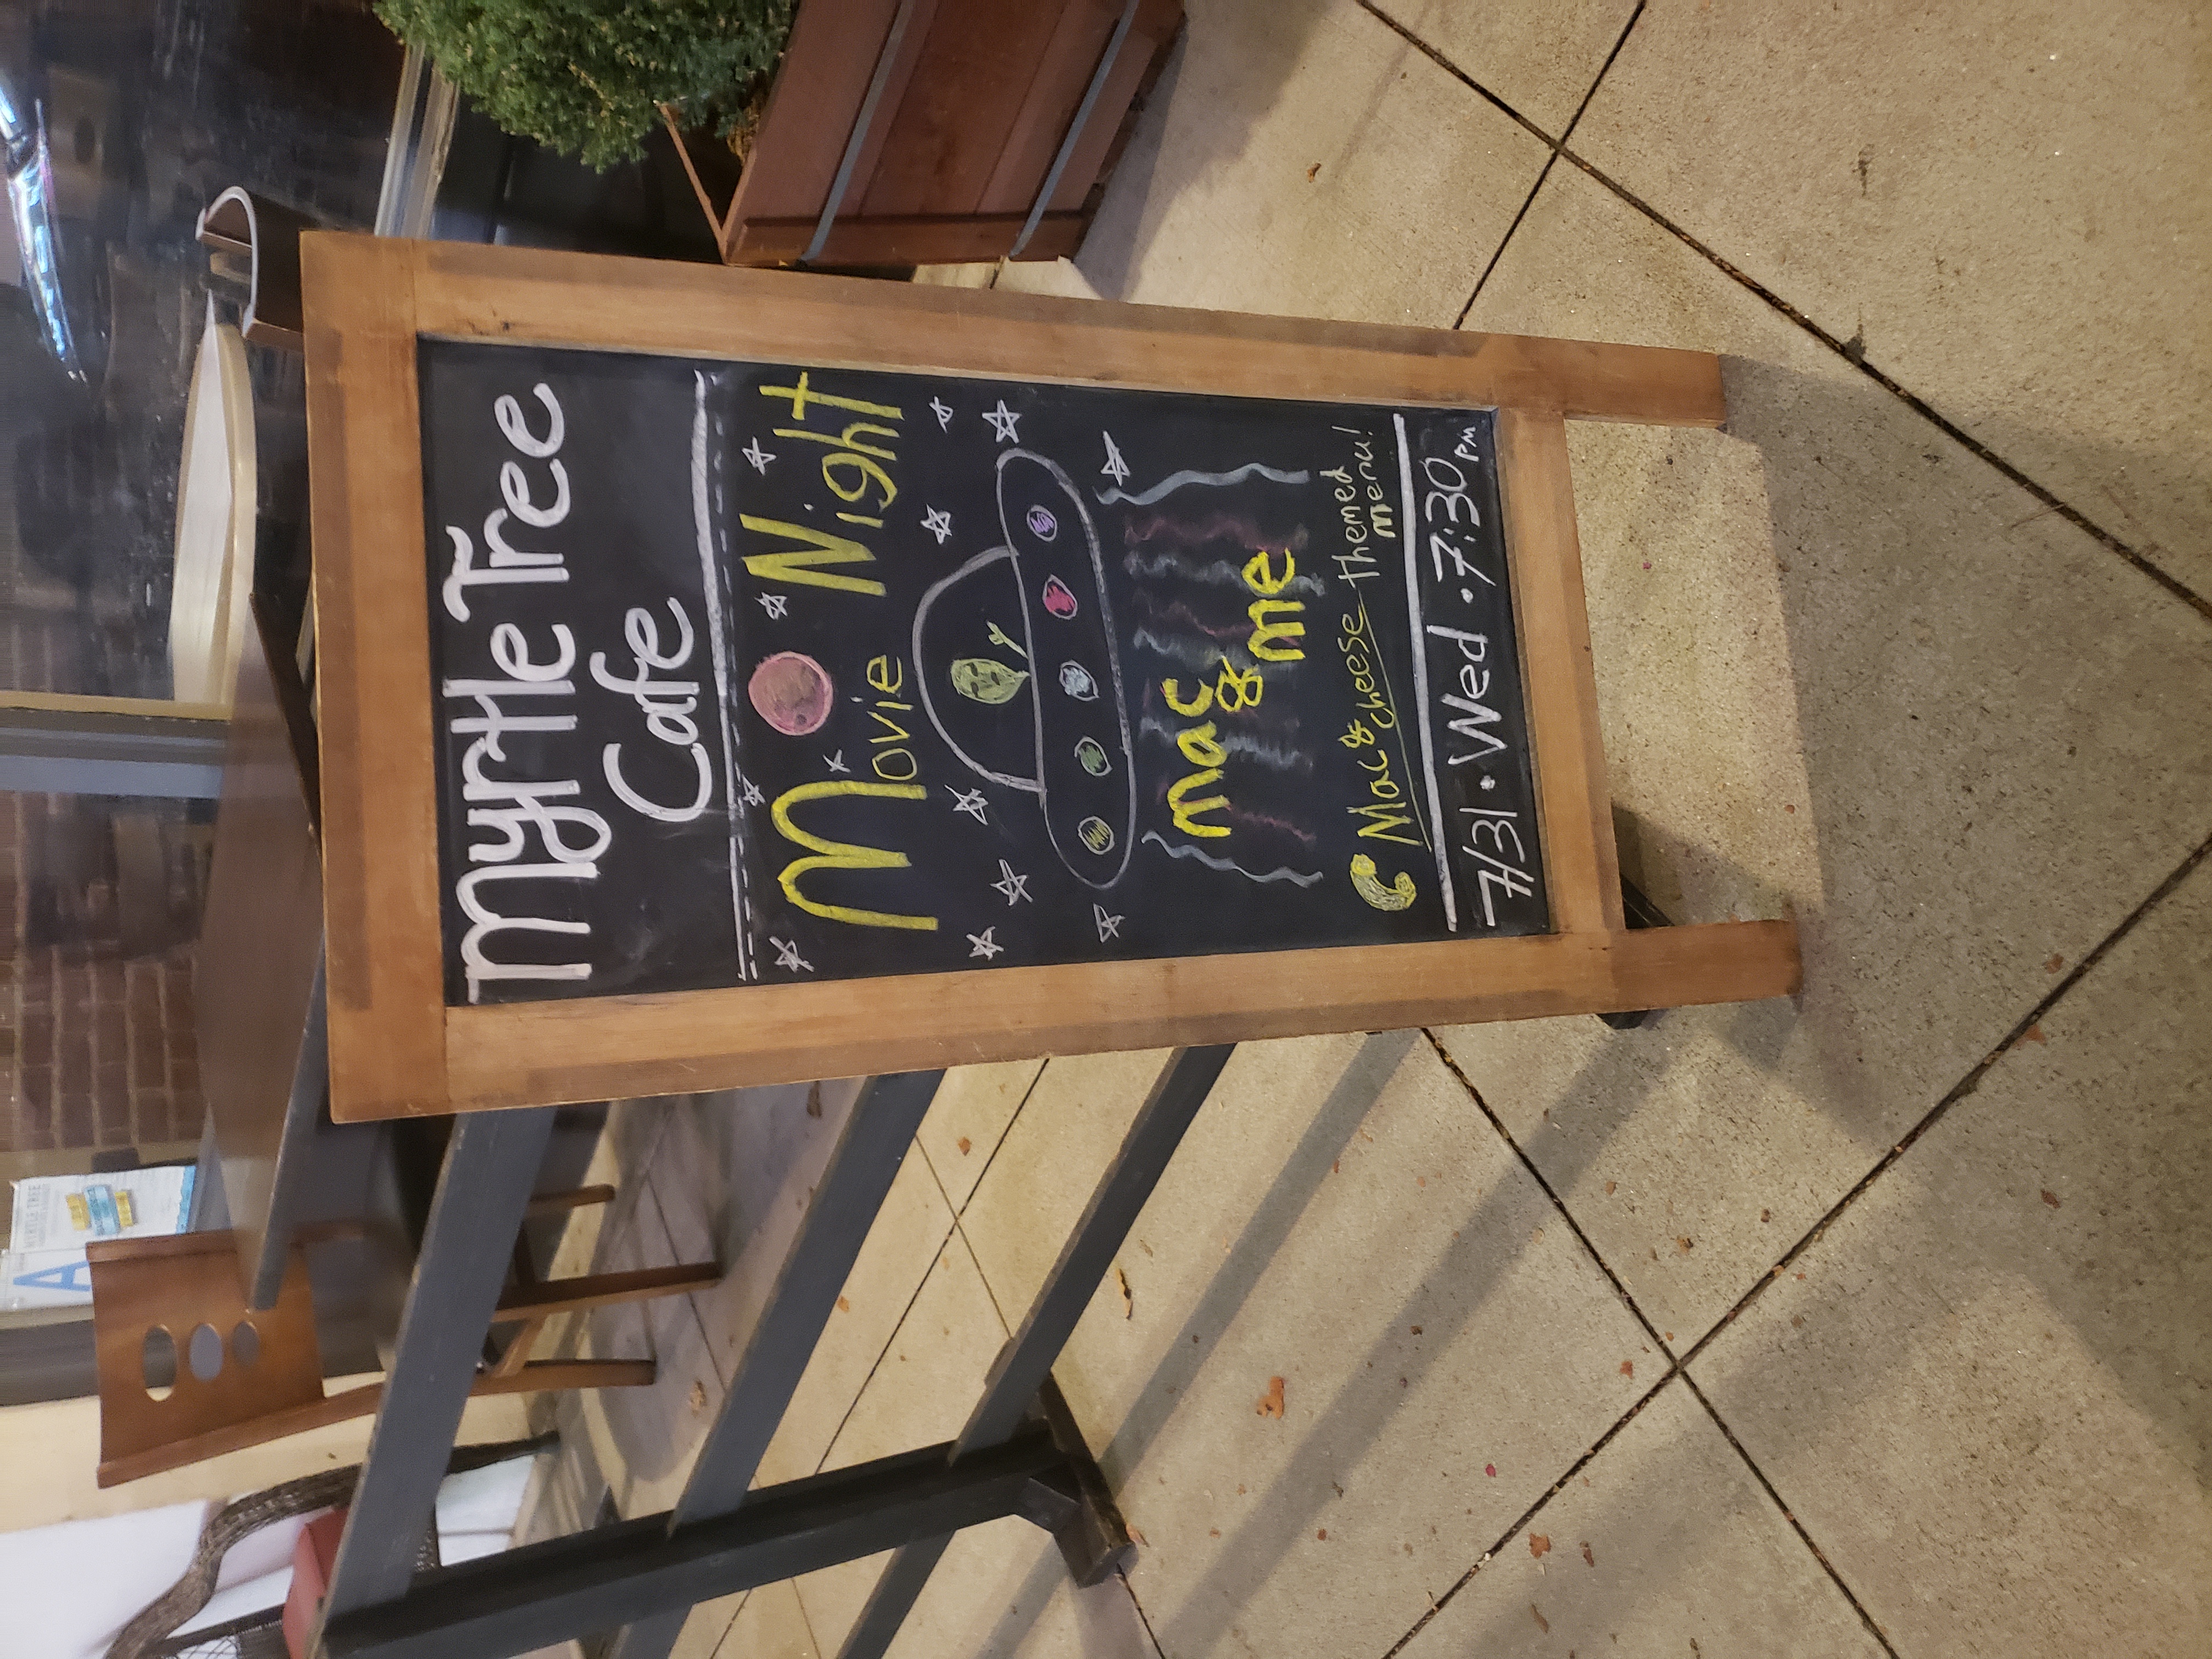 Myrtle Tree
Cafe
Movie Night
mac
&
me
Mac & cheese themed
menu!
7/31 · Wed · 7:30 PM
A
MYRTLE TREE